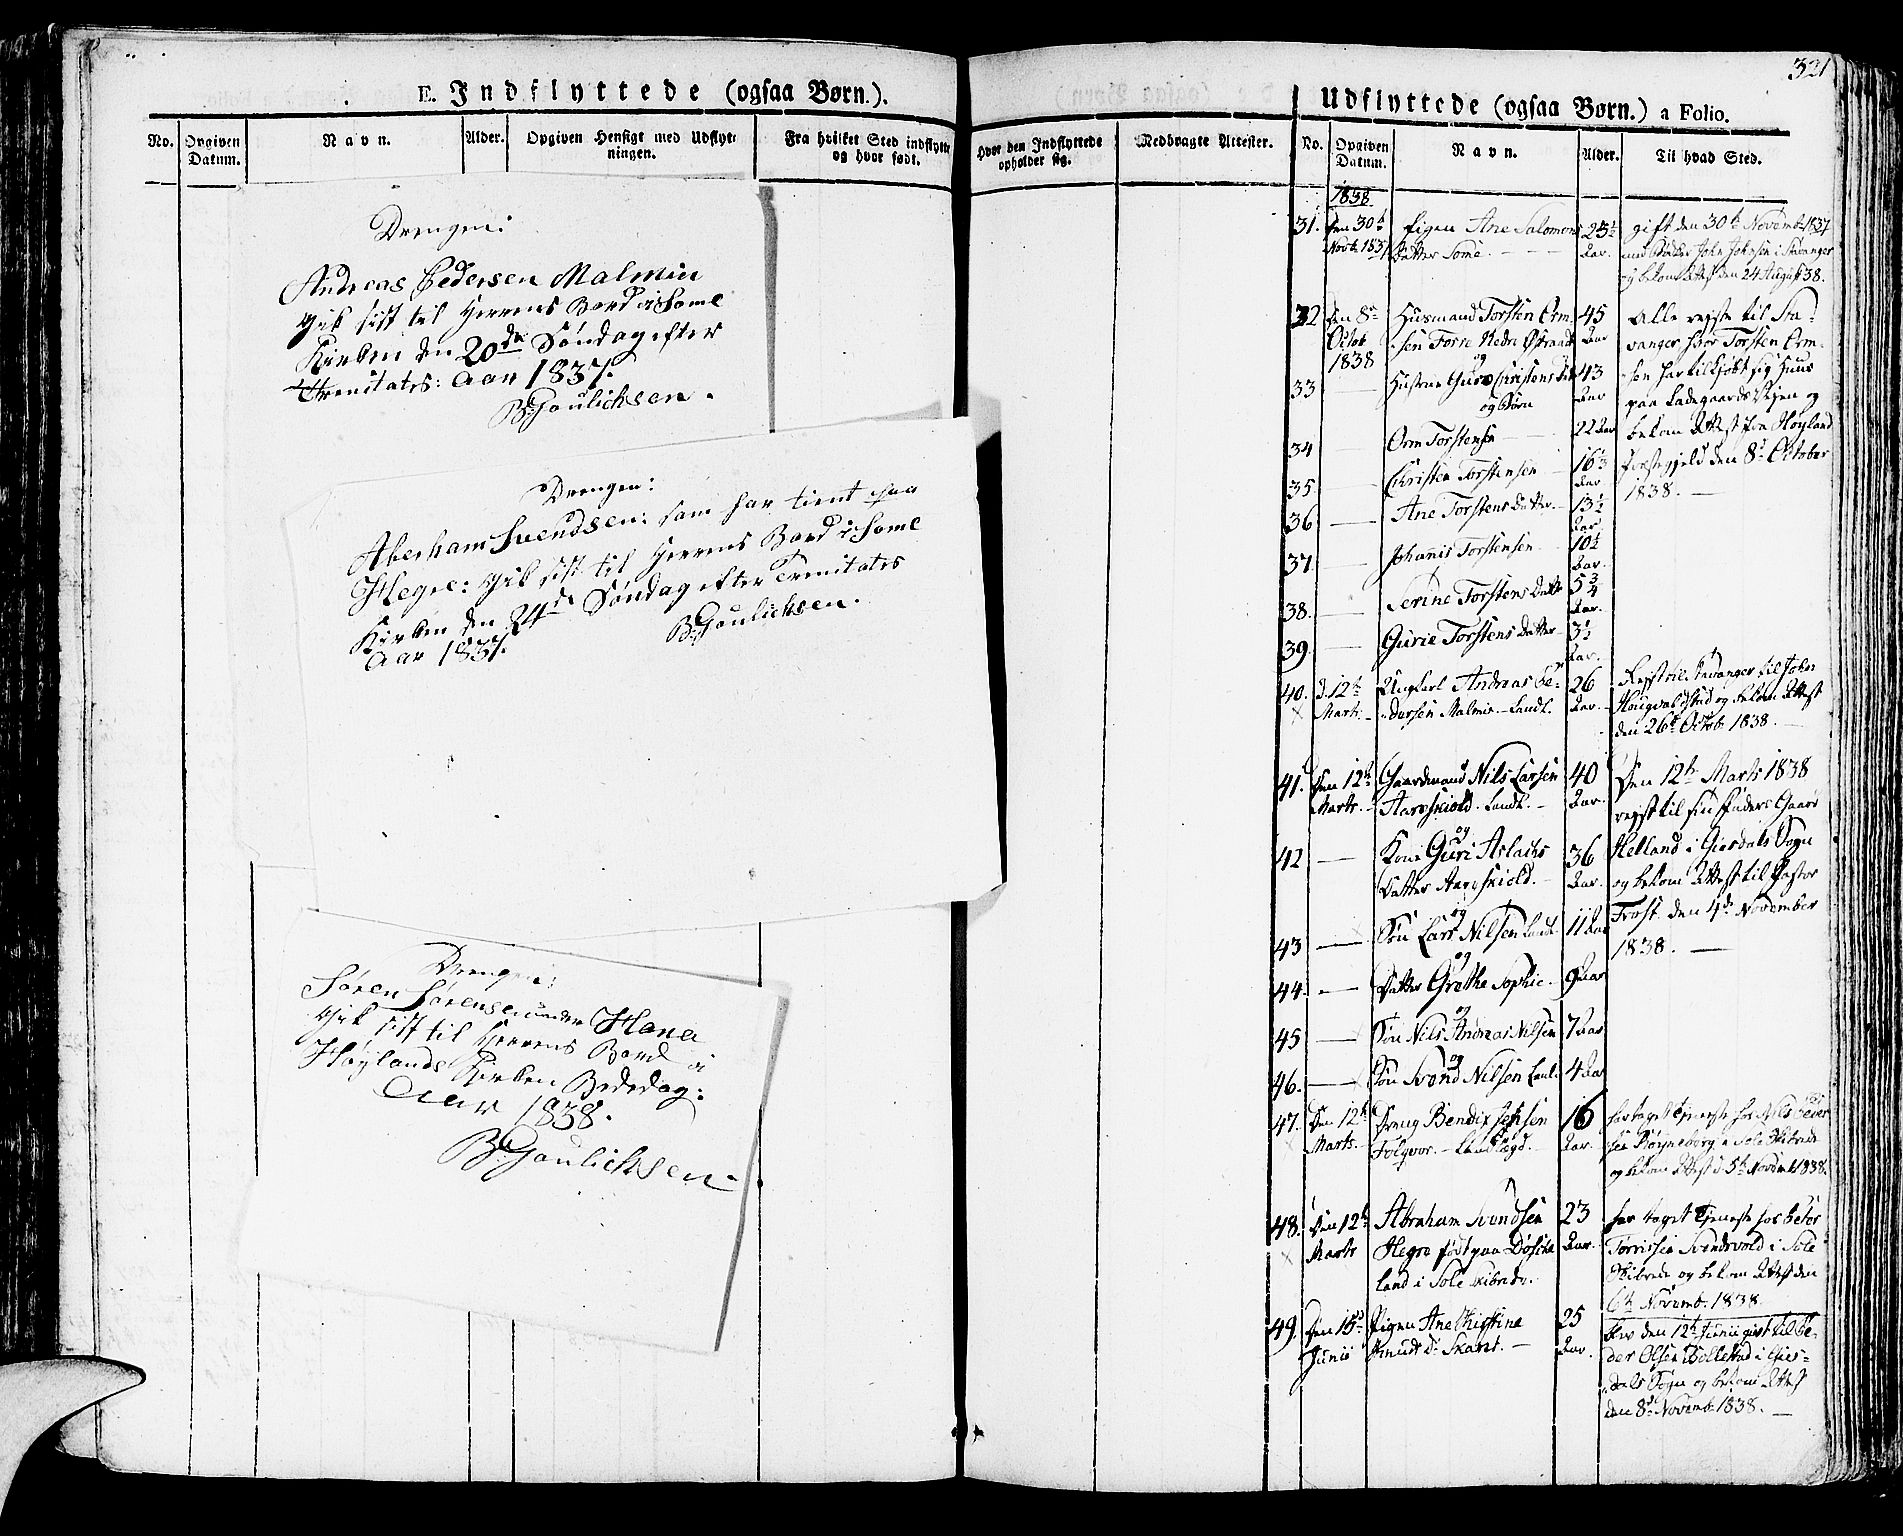 321
E. Indflyttede (ogsaa Børn.).
No.
Opgiven Datum.
Navn.
Alder.
Opgiven Hensigt med Udflytningen.
Fra hvilket Sted indflytte og hvor født.
Drengen:
Andreas Pedersen Malmin
gik sist til Herrens Bord i Some
Kirken den 20de Søndag efter
Trenitatis: Aar 1837.
B. Poulichsen.
Drengen:
Aberham Svendsen: som har tient paa
Hegre: gik sist til Herrens Bord i Some
Kirken den 24de Søndag efter Trenitatis
Aar 1837.
B. Poulichsen.
Drengen:
Søren Sørensen under Hana
gik sist til Herrens Bord i
Høylands Kirken Bededag:
Aar 1838.
B. Poulichsen.
Hvor den Indflyttede opholder sig.
Medbragte Attester.
Udflyttede (ogsaa Børn.) a Folio.
No.
Opgiven Datum.
Navn.
Alder.
Til hvad Sted.
1838
31. Den 30te Pigen Ane Salomons 23½ gift den 30te Novemb. 1837
Novb. 1837 Datter Some. Aar. med John Johnsen i Stavanger
og bekom Attest den 24 August 38.
32 Den 8de Huusmand Torsten Orm- 45 Alle reist til Sta-
Octob. sen Forre Nedre Østraad Aar vanger hvor Torsten Orm-
1838 og sen har tilkjøbt sig Huus
33 Hustrue Guro Christens Dtr 43 paa Ladegaards Veien og
og Børn Aar bekom Attest fra Høyland
34 Orm Torstensen 22 Aar Præstegjeld den 8de October
35 Christen Torstensen 16½ Aar 1838.
36 Ane Torstens Datter 13½ Aar
37. Johanis Torstensen 10½ Aar.
38. Serine Torstens Datter 5¾ Aar.
39. Gurie Torstens Datter 3½ Aar.
40. d. 12te Ungkarl Andreas Pe- 26 Reist til Stavanger til John
Marts. dersen Malmin. Landt. Aar. Hougvaldstad og bekom Attest
den 26de Octob. 1838.
41. Den 12te Gaardmand Nils Larsen 40 Den 12te Marts 1838
Marts. Aarsvold. Landt. Aar. reist til sin Gaard
og
42 Kone Guri Aslachs 36 Helland i Giesdals Sogn
Datter Aarsvold. Aar. og bekom Attest til Pastor
og
43 Søn Lars Nilsen Landt. 11 Aar Frost. den 4de November
1838.
og
44. Datter Grethe Sophie. 9 Aar
og
45 Søn Nils Andreas Nilsen 7 Aar
og
46. Søn Svend Nilsen Landt. 4 Aar
47. Den 12te Dreng Bendix Jensen 16 har taget Tjeneste hos Nils Peder
Marts. Folgvor. Landt. Aar. sen i Sole Skibrede
og bekom Attest d. 5te Novemb. 1838.
48. Den 12te Abraham Svendsen 23 har taget Tjeneste hos Peder
Marts Hegre født paa Aar. Torrissen i Sole
land i Sole Skibrede. Skibrede og bekom Attest den
6te Novemb. 1838.
49. Den 15de Pigen Ane Christine 25 blev den 12te Junii gift til Pe-
Junii Knuds D. Skaret. Aar. der Olsen Bollestad i Gies-
dals Sogn og bekom Attest
den 8de Novemb. 1838.